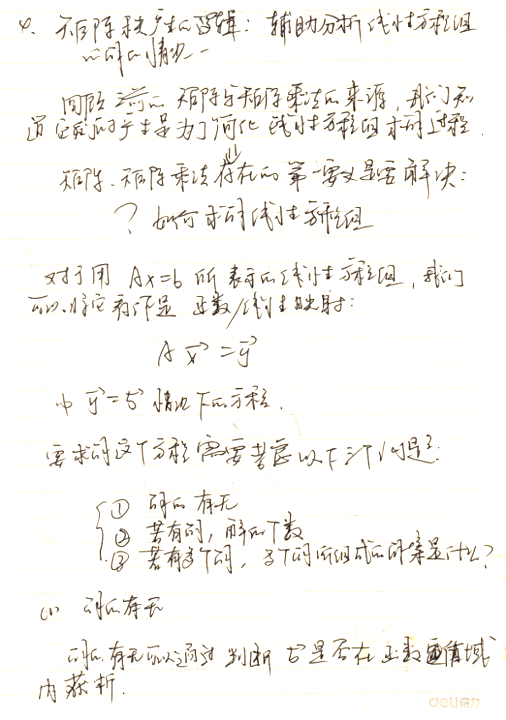 4. 矩阵秩产生的逻辑：辅助分析线性方程组
的解的情况
回顾之前的矩阵与矩阵乘法的来源，我们知
道它们的产生是为了简化线性方程组求解过程.
矩阵、矩阵乘法存在的第一要义是要解决：
？如何求解线性方程组
对于用 Ax=b 所表示的线性方程组，我们
可以将它看作是函数/线性映射：
A x⃗ = y⃗
中 y⃗ = b⃗ 情况下的方程.
要求解这个方程需要考虑以下三个问题：
① 解的有无
② 若有解，解的个数
③ 若有多个解，多个解所组成的解集是什么？
(1) 解的有无
解的有无可以通过判断 b⃗ 是否在函数值域
内获析.
deli得力